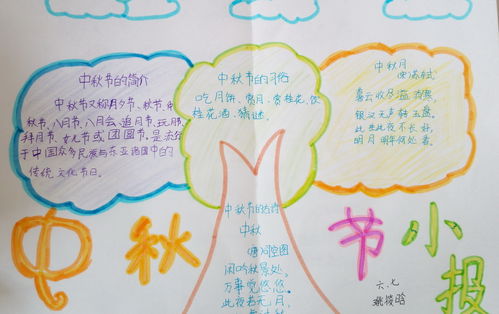 中秋节的简介
中秋节又称月夕、秋节、仲
秋节、八月节、八月会、追月节、玩月节、
拜月节、女儿节或团圆节，是流行
于中国众多民族与东亚诸国中的
传统文化节日。
中秋节的习俗
吃月饼、赏月、赏桂花、饮
桂花酒、猜谜。
中秋月
(宋)苏轼
暮云收尽溢清寒，
银汉无声转玉盘。
此生此夜不长好，
明月明年何处看。
中秋节的古诗
中秋
(唐)司空图
闲吟秋景外，
万事觉悠悠。
此夜若无月，
中秋节小报
六、七